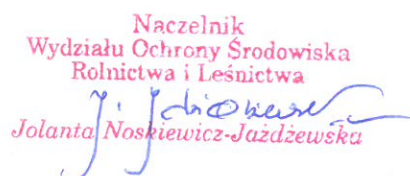 Naczelnik
Wydziału Ochrony Środowiska
Rolnictwa i Leśnictwa
Jolanta Noskiewicz-Jażdżewska